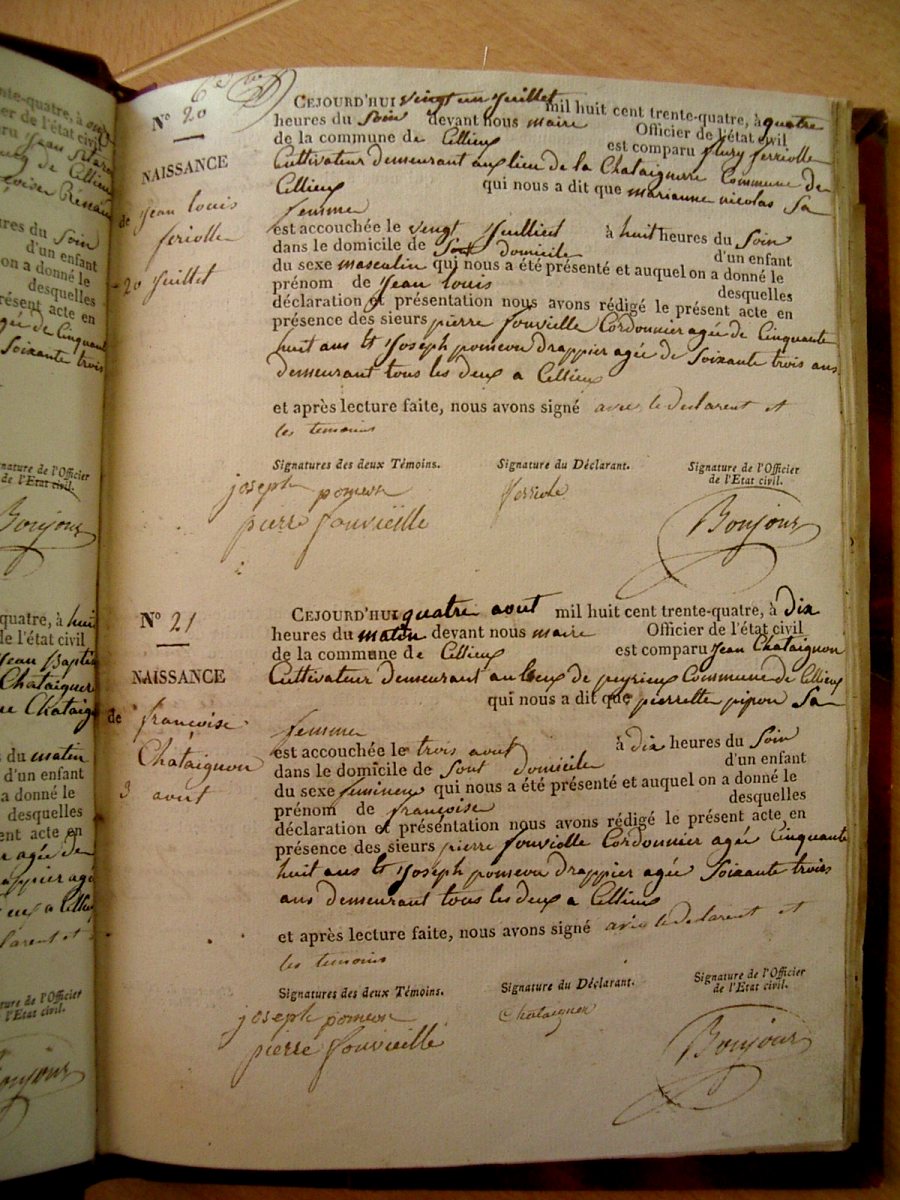 6e
N° 20
NAISSANCE
de jean louis
feriolle
20 juillet
CEJOURD'HUI vingt un juillet mil huit cent trente-quatre, à quatre
heures du Soir devant nous maire Officier de l'état civil
de la commune de Cellieu est comparu fleury ferriolle
Cultivateur demeurant au lieu de la Chataignerre Commune de
Cellieu qui nous a dit que marianne nicolas Sa
femme
est accouchée le vingt Juilliet à huit heures du Soir
dans le domicile de Sont domicile d'un enfant
du sexe masculin qui nous a été présenté et auquel on a donné le
prénom de Jean louis desquelles
déclaration et présentation nous avons rédigé le présent acte en
présence des sieurs pierre fonvielle Cordonnier agée de Cinquante
huit ans et Joseph pomeon drappier agée de Soixante trois ans
demeurant tous les deux a Cellieu
et après lecture faite, nous avons signé avec le declarent et
les temoins
Signatures des deux Témoins. Signature du Déclarant. Signature de l'Officier
de l'Etat civil.
joseph pomeon ferriole Bonjour
pierre fonvieille
N° 21
NAISSANCE
de françoise
Chataignon
3 aout
CEJOURD'HUI quatre aout mil huit cent trente-quatre, à dix
heures du matin devant nous maire Officier de l'état civil
de la commune de Cellieu est comparu jean Chataignon
Cultivateur demeurant au lieux de peyrieux Commune de Cellieu
qui nous a dit que pierrette pipon Sa
femme
est accouchée le trois aout à dix heures du Soir
dans le domicile de Sont domicile d'un enfant
du sexe feminen qui nous a été présenté et auquel on a donné le
prénom de françoise desquelles
déclaration et présentation nous avons rédigé le présent acte en
présence des sieurs pierre fonvielle Cordonnier agée Cinquante
huit ans et Joseph pomeon drappier agée Soixante trois
ans demeurant tous les deux a Cellieu
et après lecture faite, nous avons signé avec le declarent et
les temoins
Signatures des deux Témoins. Signature du Déclarant. Signature de l'Officier
de l'Etat civil.
joseph pomeon Chataignon Bonjour
pierre fonvieille